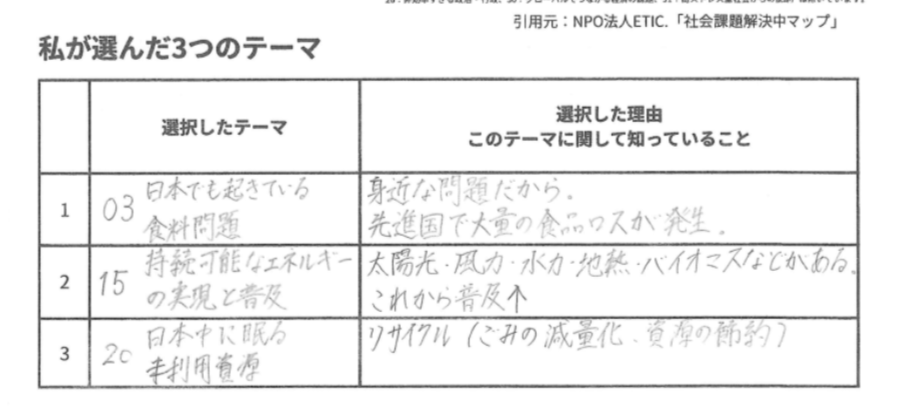 引用元：NPO法人ETIC.「社会課題解決中マップ」
私が選んだ3つのテーマ
選択したテーマ
選択した理由
このテーマに関して知っていること
1
03 日本でも起きている
食料問題
身近な問題だから。
先進国で大量の食品ロスが発生。
2
15 持続可能なエネルギー
の実現と普及
太陽光・風力・水力・地熱・バイオマスなどがある。
これから普及↑
3
20 日本中に眠る
未利用資源
リサイクル（ごみの減量化、資源の節約）